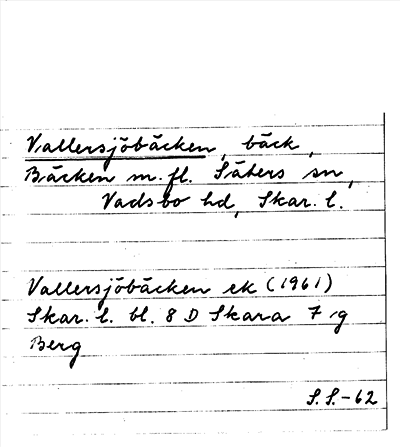 Vallersjöbäcken, bäck,
Bäcken m. fl. Säters sn,
Vadsbo hd, Skar. l.
Vallersjöbäcken ek (1961)
Skar. l. bl. 8 D Skara 7 g
Berg
S. S. -62